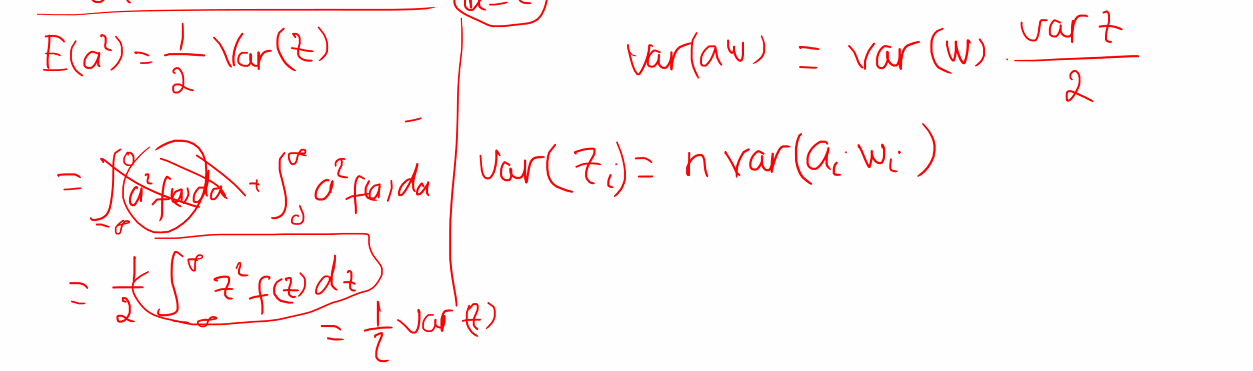 E(a²) = 1/2 Var(z)
= ∫_{-∞}^{0} a² f(a) da + ∫_{0}^{∞} a² f(a) da
= 1/2 ∫_{-∞}^{∞} z² f(z) dz
= 1/2 Var(z)
var(aw) = var(w) · var z / 2
Var(z_i) = n var(a_i w_i)